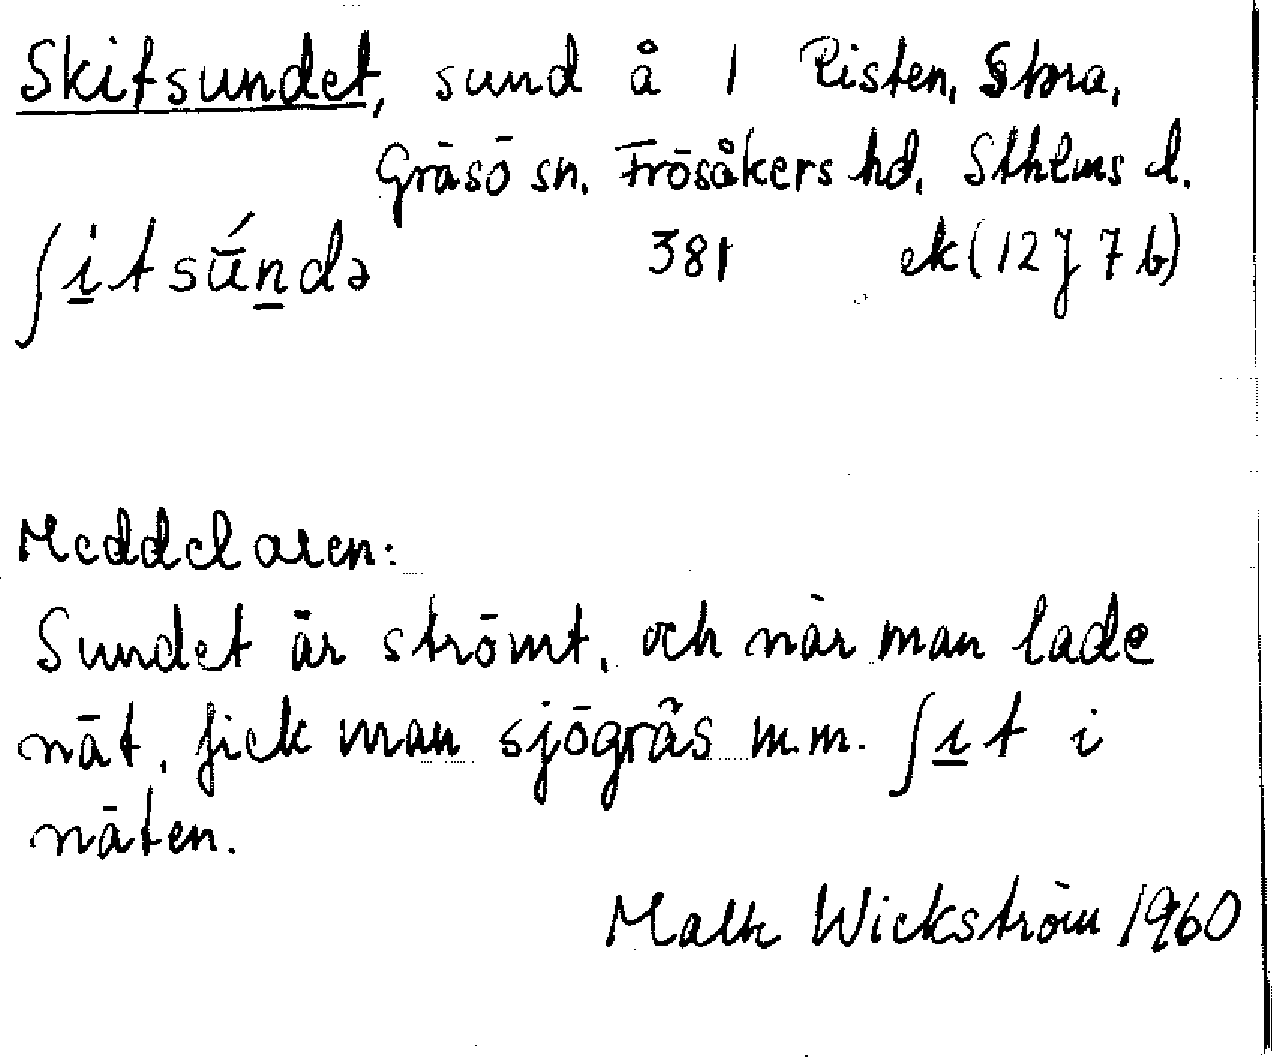 Skitsundet, sund å 1 Risten, Stora,
Gräsö sn. Frösåkers hd. Sthlms l.
ʃi̲tsū́n̲də 381 ek (12J 7b)
Meddelaren:
Sundet är strömt, och när man lade
nät, fick man sjögräs m.m. ʃi̲t i
näten.
Wickström 1960